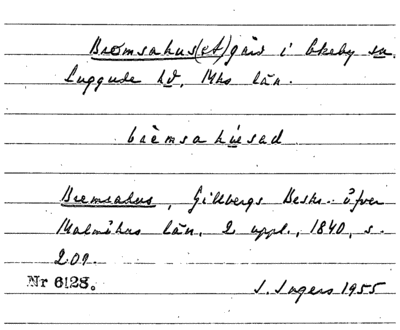 Bromsahus(et) gård i Ekeby sn,
Luggude hd, Mhs län.
brèmsahúsad
Bremsahus, Gillbergs Beskr. öfver
Malmöhus län, 2 uppl., 1840, s.
201.
Nr 6128. J. Ingers 1955